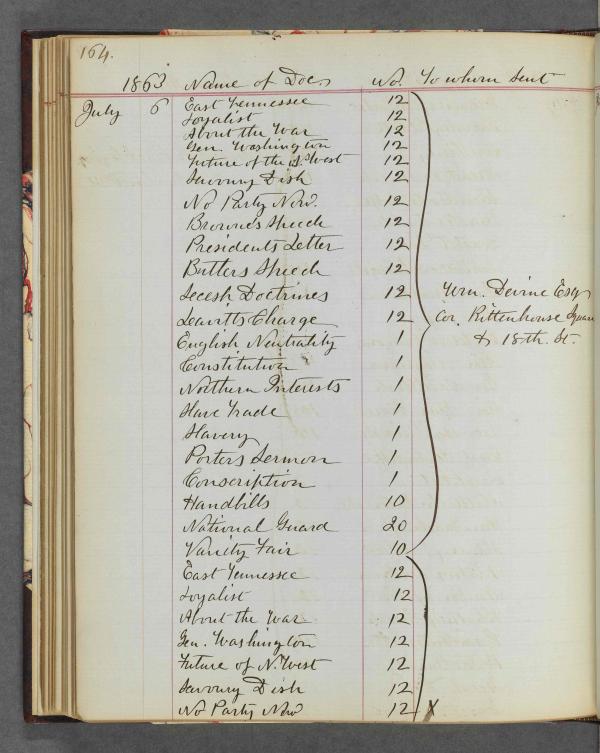 164.
1863 Name of Doc. No. To whom sent
July 6 East Tennessee 12
Loyalist 12
About the War 12
Gen. Washington 12
Future of the N. West 12
Savoury Dish 12
No Party Now. 12
Browne's Speech 12
Presidents Letter 12
Butlers Speech 12
Secesh Doctrines 12 Wm. Devine Esq
Leavitts Charge 12 Cor. Rittenhouse Square
English Neutrality 1 & 18th. St.
Constitution 1
Northern Interests 1
Slave Trade 1
Slavery 1
Porters Sermon 1
Conscription 1
Handbills 10
National Guard 20
Vanity Fair 10
East Tennessee 12
Loyalist 12
About the War 12
Gen. Washington 12
Future of N. West 12
Savoury Dish 12
No Party Now 12 X